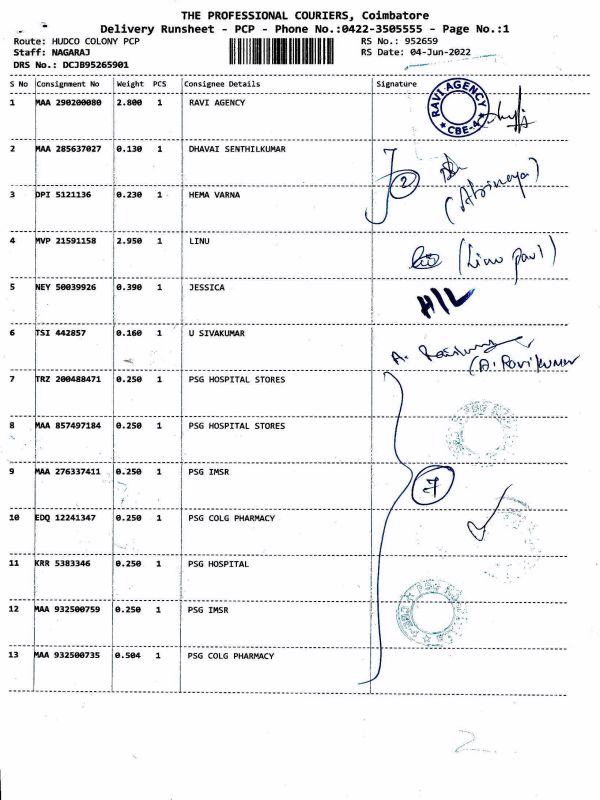 THE PROFESSIONAL COURIERS, Coimbatore
Delivery Runsheet - PCP - Phone No.:0422-3505555 - Page No.:1
Route: HUDCO COLONY PCP
RS No.: 952659
Staff: NAGARAJ
RS Date: 04-Jun-2022
DRS No.: DCJB95265901
S No Consignment No Weight PCS Consignee Details Signature
1 MAA 290200080 2.800 1 RAVI AGENCY
RAVI AGENCY
★ CBE-4 ★
2 MAA 285637027 0.130 1 DHAVAI SENTHILKUMAR
2
(Abinaya)
3 DPI 5121136 0.230 1 HEMA VARNA
4 MVP 21591158 2.950 1 LINU
(Linu Paul)
5 NEY 50039926 0.390 1 JESSICA
H/L
6 TSI 442857 0.160 1 U SIVAKUMAR
(A. Ravikumar
7 TRZ 200488471 0.250 1 PSG HOSPITAL STORES
8 MAA 857497184 0.250 1 PSG HOSPITAL STORES
9 MAA 276337411 0.250 1 PSG IMSR
7
10 EDQ 12241347 0.250 1 PSG COLG PHARMACY
11 KRR 5383346 0.250 1 PSG HOSPITAL
12 MAA 932500759 0.250 1 PSG IMSR
13 MAA 932500735 0.504 1 PSG COLG PHARMACY